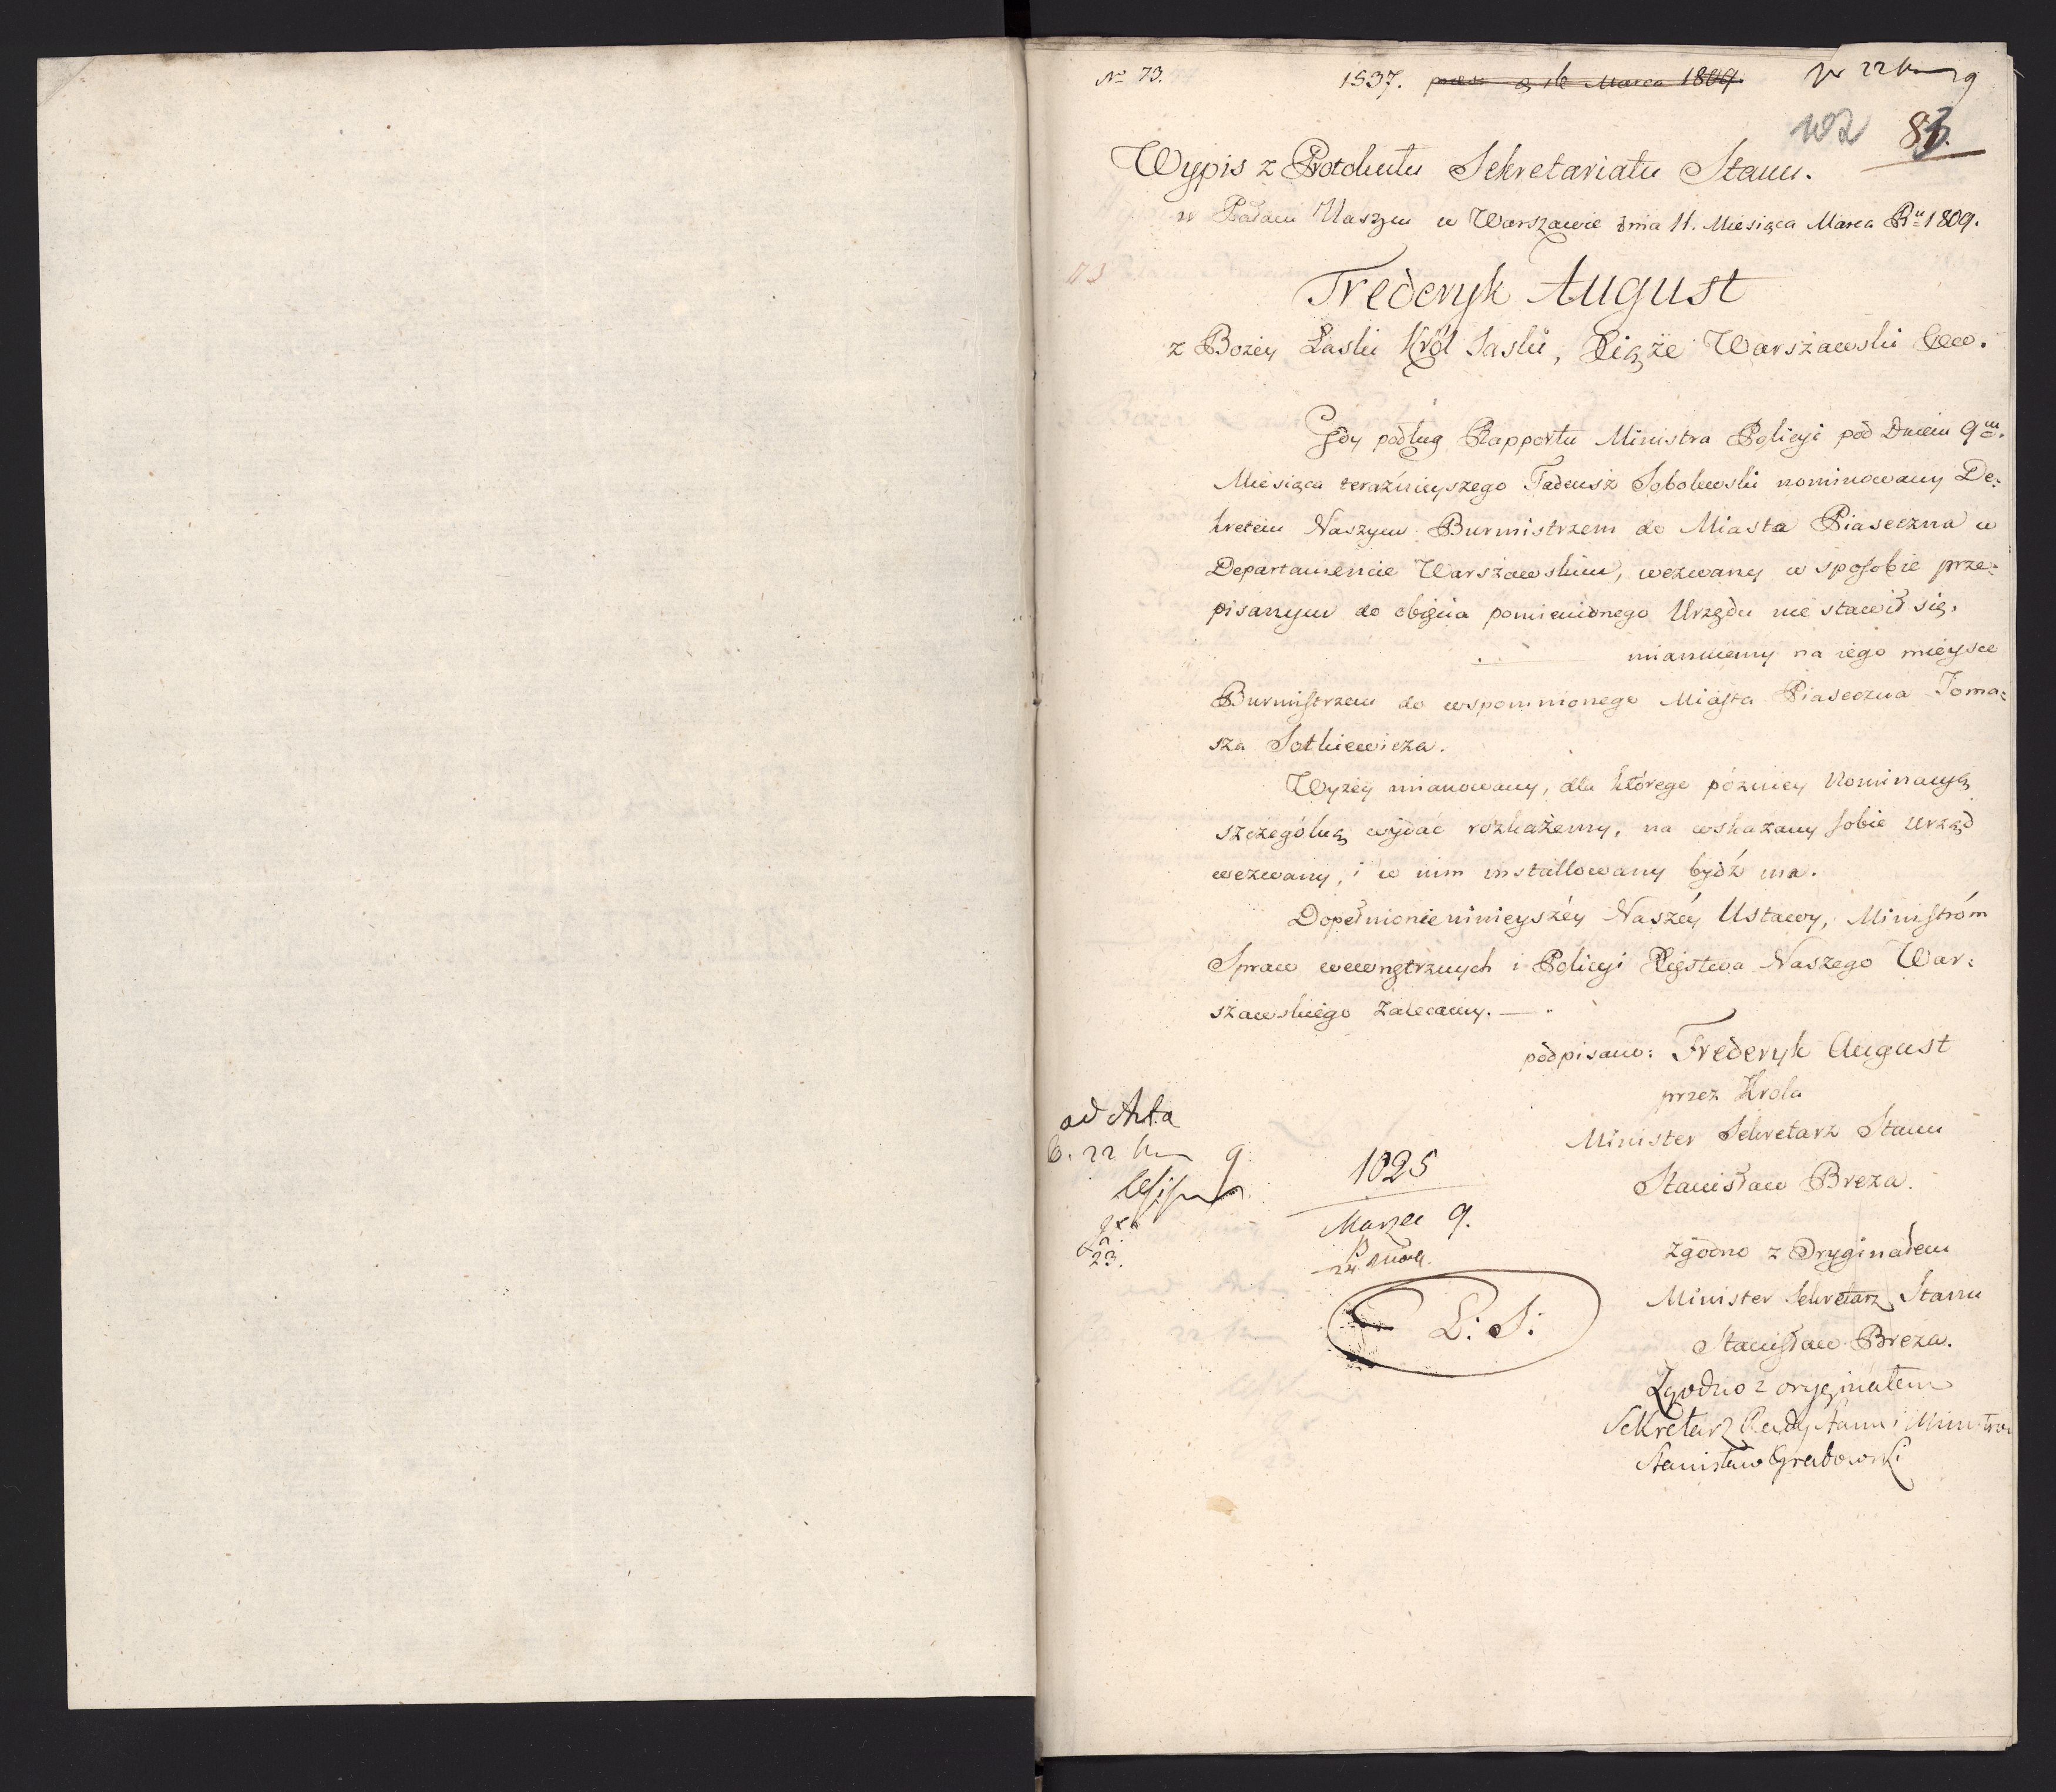 No 73. 1537. 16 Marca 1809. 22
102 83.
Wypis z Protokułu Sekretariatu Stanu.
w Pałacu Naszym w Warszawie dnia 11. Miesiąca Marca Ru 1809.
Frederyk August
z Bożey Łaski Król Saski, Xiąże Warszawski &&&.
Gdy podług Rapportu Ministra Policyi pod Dniem 9m.
Miesiąca teraźnieyszego Tadeusz Sobolewski nominowany De:
kretem Naszym Burmistrzem do Miasta Piaseczna w
Departamencie Warszawskim, wezwany w sposobie prze:
pisanym do obięcia pomienionego Urzędu nie stawił się.
mianuiemy na iego mieysce
Burmistrzem do wspomnionego Miasta Piaseczna Toma:
sza Sotkiewicza.
Wyżey mianowany, dla którego pózniey Nominacyą
szczególną wydać rozkażemy, na wskazany sobie Urząd
wezwany, i w nim installowany bydź ma.
Dopełnienie ninieyszéy Naszéy Ustawy, Ministróm
Spraw wewnętrznych i Policyi Xięstwa Naszego War:
szawskiego zalecamy. —
podpisano: Frederyk August
przez Krola
Minister Sekretarz Stanu
Stanisław Breza.
ad Acta
22 9
23.
1025
Marzec 9.
24.
L: S:
zgodno z Oryginałem
Minister Sekretarz Stanu
Stanisław Breza.
Zgodno z oryginałem
Sekretarz Rady Stanu i Ministrow
Stanisław Grabowski